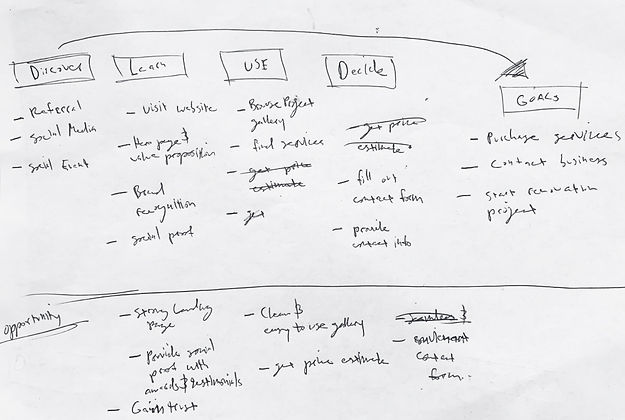 Discover
- Referral
- Social Media
- Social Event
Learn
- Visit website
- Home page &
value proposition
- Brand
recognition
- social proof
USE
- Browse Project
gallery
- find services
- get price
estimate
- get
Decide
get price
estimate
- fill out
contact form
- provide
contact info
GOALS
- Purchase services
- Contact business
- start renovation
project
opportunity
- Strong landing
page
- Provide social
proof with
awards & testimonials
- Gain trust
- Clean &
easy to use gallery
- get price estimate
- services &
-
contact
form.